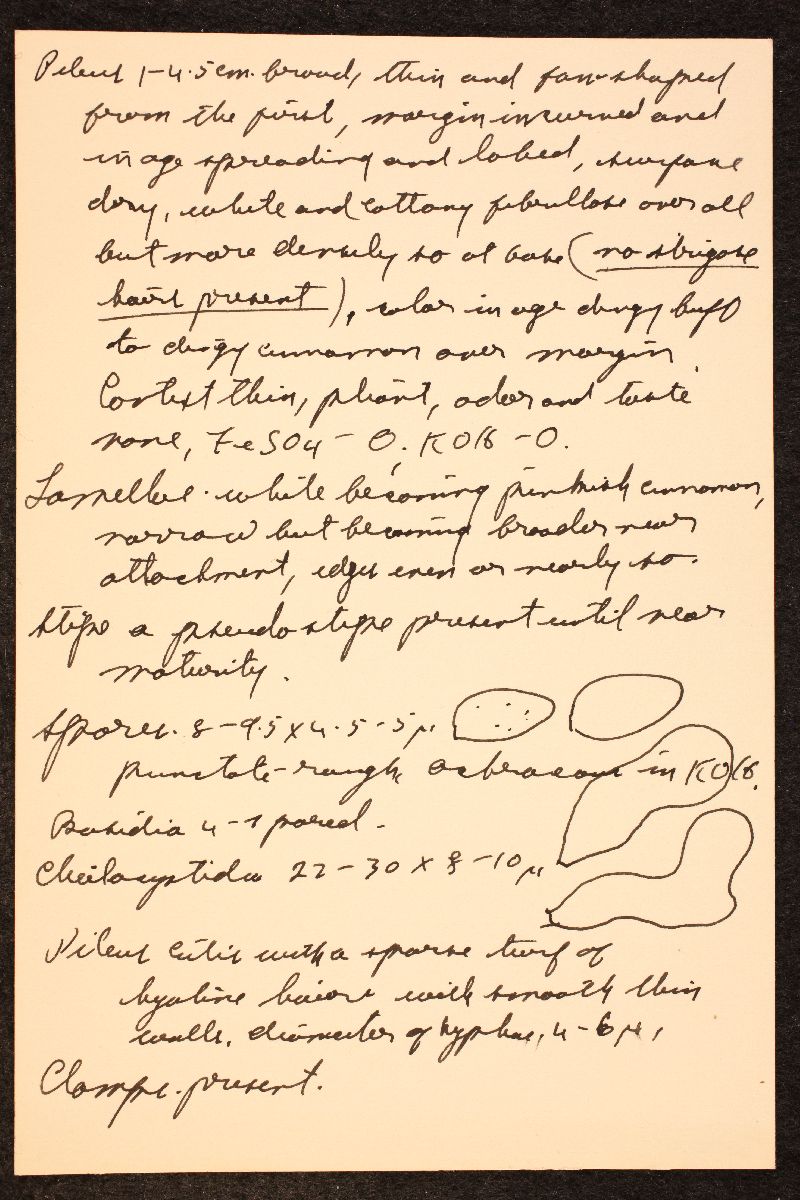 Pileus 1-4.5 cm. broad, thin and fan-shaped
from the first, margin incurved and
in age spreading and lobed, surface
dry, white and cottony fibrillose over all
but more densely so at base (no strigose
hairs present), color in age dingy buff
to dingy cinnamon over margin.
Context thin, pliant, odor and taste
none, FeSO4 - O. KOH - O.
Lamellae. white becoming pinkish cinnamon,
narrow but becoming broader near
attachment, edges even or nearly so.
Stipe a pseudostipe present until near
maturity.
Spores. 8-9.5 x 4.5-5 μ
punctate-rough, ochraceous in KOH.
Basidia 4-spored.
Cheilocystidia 22-30 x 8-10 μ
Pileus cutis with a sparse turf of
hyaline hairs with smooth thin
walls. diameter of hyphae, 4-6 μ,
Clamps. present.